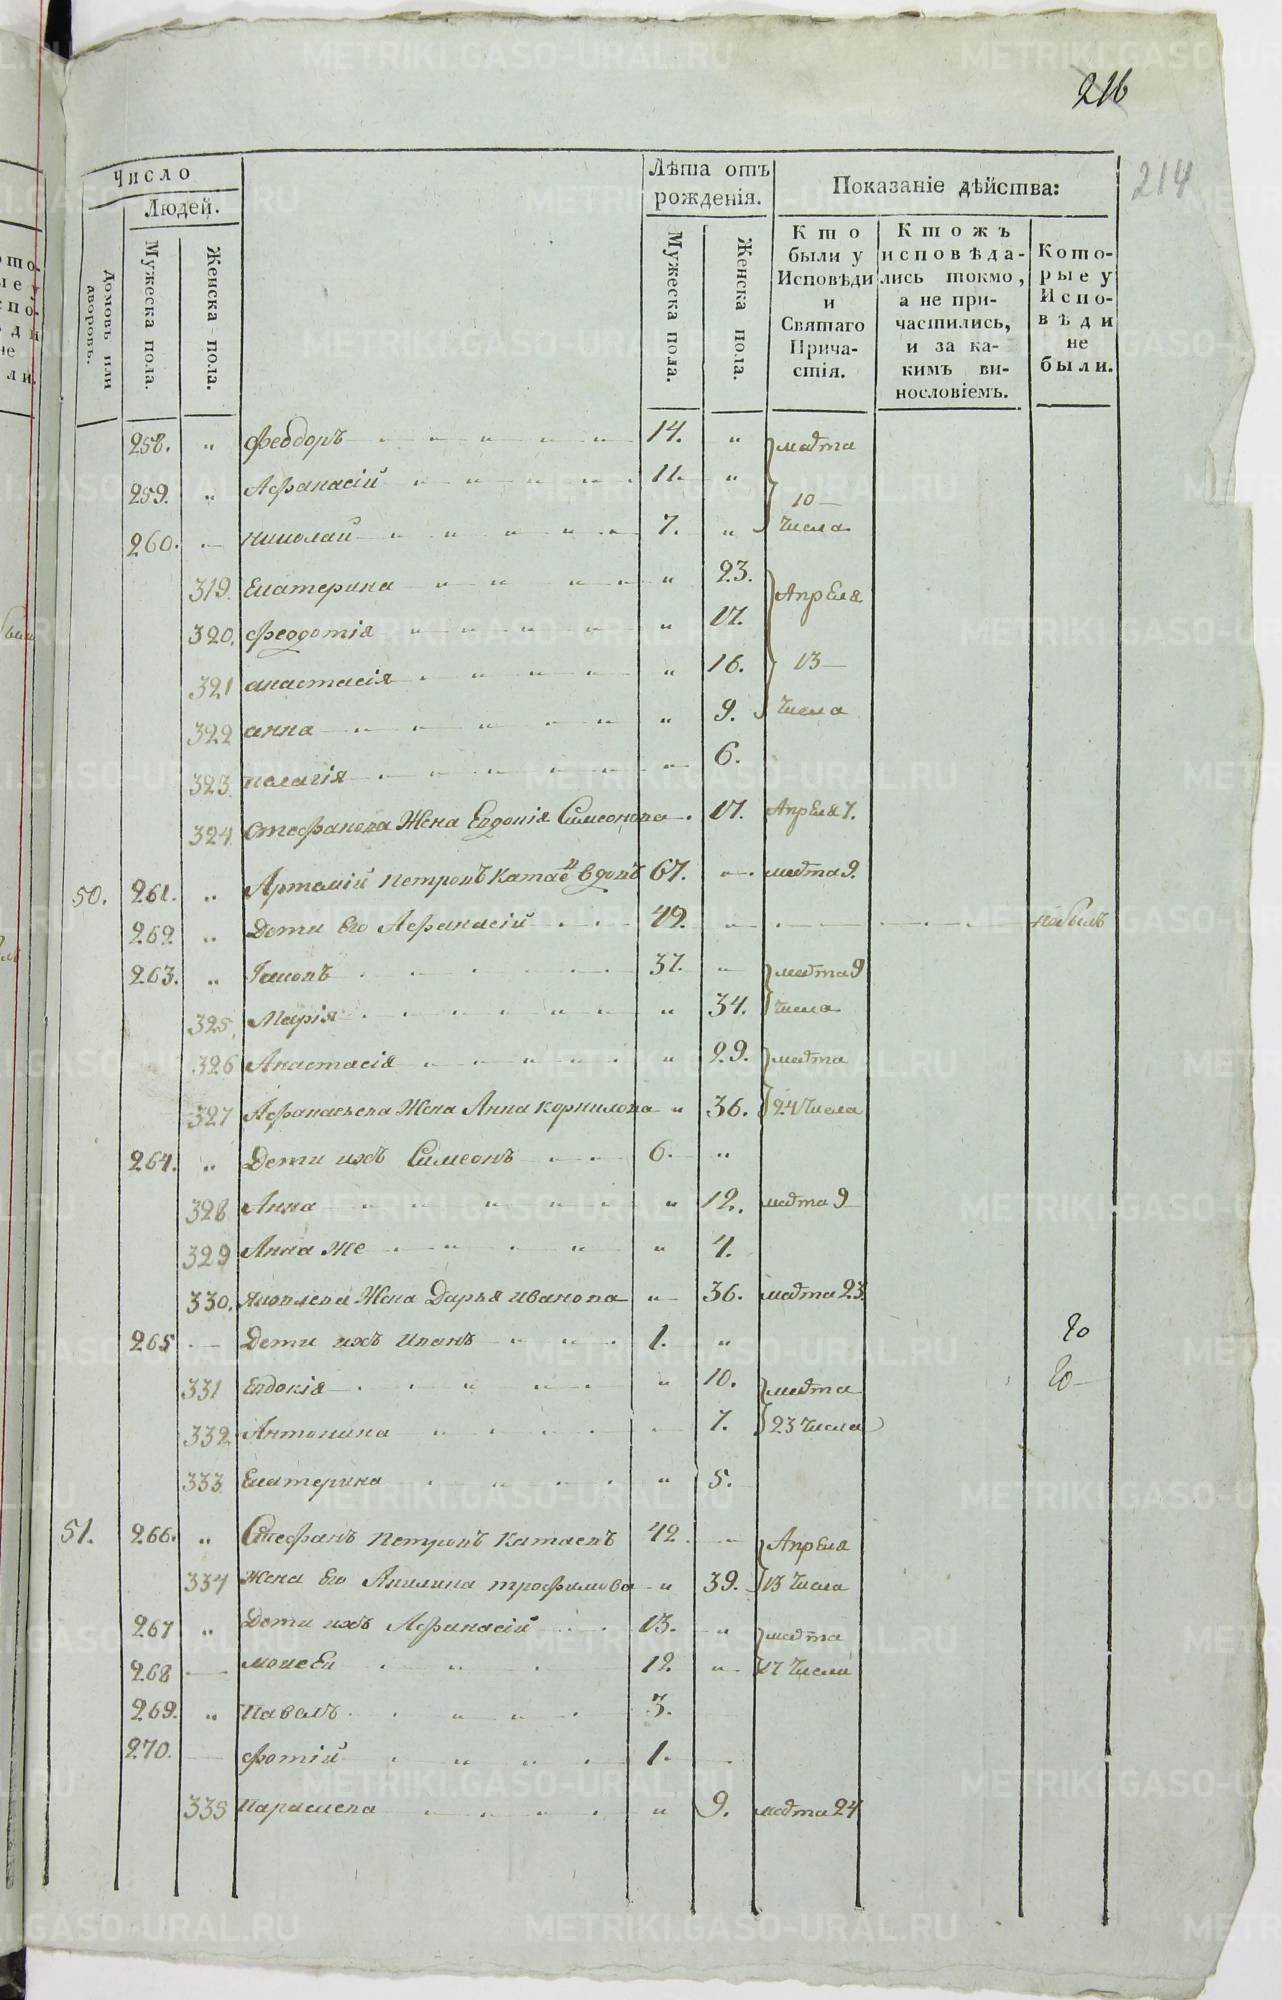 216
214
Число
Людей.
Домовъ или дворовъ.
Мужеска пола.
Женска пола.
Лѣта отъ рожденія.
Мужеска пола.
Женска пола.
Показаніе дѣйства:
Кто были у Исповѣди и Святаго Причастія.
Ктожъ исповѣдались токмо, а не причастились, и за какимъ винословіемъ.
Которые у Исповѣди не были.
258. " Феодоръ 14. " марта
259. " Афанасій 11. " 10
260. николай 7. " числа
319. Екатерина " 23. Апреля
320. Феодотія " 17.
321 анастасія " 16. 13
322 анна " 9. числа
323. пелагія " 6.
324. Стефанова Жена Евдокія Симеонова 17. Апреля 7.
50. 261. " Артемій петровъ Катаевъ вдовъ 67. марта 9.
262 " Дети его Афанасій 42. небылъ
263. " Іаковъ 37. марта 9
325. Марія " 34. числа
326 Анастасія " 29. марта
327 Афанасьева Жена Анна корнилова " 36. 24 числа
264. " Дети ихъ Симеонъ 6. "
328 Анна " 12. марта 9
329 Анна же " 4.
330. яковлева Жена Дарья иванова " 36. марта 23.
265 Дети ихъ иванъ 1. "
331 Евдокія " 10. марта
332 Антонина 7. 23 числа
333. Екатерина " 5.
51. 266. " Стефанъ петровъ Катаевъ 42. Апреля
334 жена его Акилина трофимова " 39. 13 числа
267 " Дети ихъ Афанасій 13. " марта
268 моисей 12. " 17 числа
269. " Павелъ 3.
270. фотій 1.
335 Параскева " 9. марта 24
METRIKI.GASO-URAL.RU